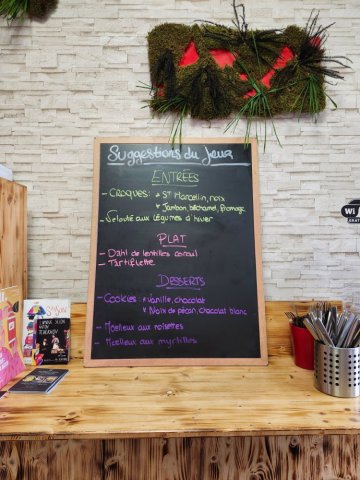 Suggestions du Jour
ENTRÉES
- Croques: * St Marcelin, noix
* Jambon béchamel, fromage
- Velouté aux légumes d'hiver
PLAT
- Dahl de lentilles corail
- Tartiflette
DESSERTS
- Cookies: * vanille, chocolat
* Noix de pécan, chocolat blanc
- Moelleux aux noisettes
- Moelleux aux myrtilles
Wi